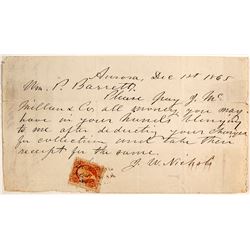 Aurora, Dec 1st 1865
Wm. P. Barrett.
Please pay J. Mc
Millan & Co. all moneys you may
have in your hands belonging
to me after deducting your charges
for collection and take their
receipt for the same.
J. W. Nichols